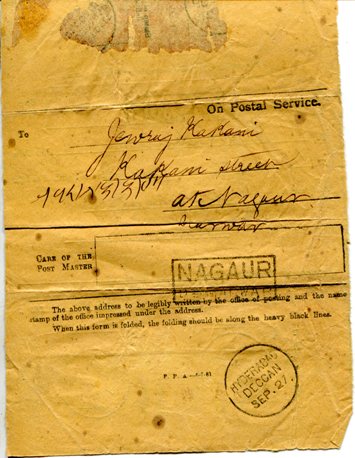 On Postal Service.
To
Jewraj Kakani
Kakani Street
at Nagaur
Marwar
CARE OF THE
POST MASTER
NAGAUR
The above address to be legibly written by the office of posting and the name
stamp of the office impressed under the address.
When this form is folded, the folding should be along the heavy black lines.
HYDERABAD
DECCAN
SEP. 27